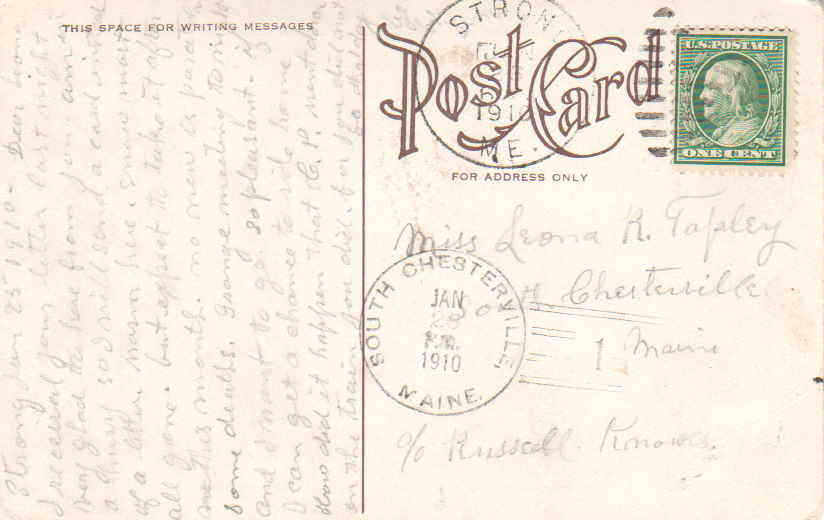 THIS SPACE FOR WRITING MESSAGES
Post Card
FOR ADDRESS ONLY
STRONG
1910
ME.
U.S. POSTAGE
ONE CENT
Miss Leona R. Tapley
South Chesterville
Maine
c/o Russell Knowles.
SOUTH CHESTERVILLE
JAN
P.M.
1910
MAINE.
Strong Jan 25 1910 - Dear Leona
I received your letter last night
very glad to hear from am in
a hurry so I will send a card instead
of a letter. warm here. snow most
all gone. but expect to take it after
this month. no news in particular
some deaths. Grange meeting to
and I want to go. so pleasant if
I can get a chance to ride home
How did it happen that C. P. went
on the train you did. or you did